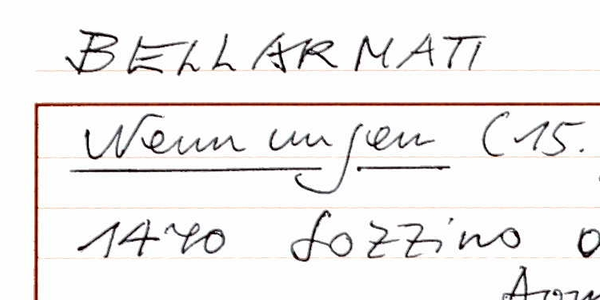 BELLARMATI
Nennungen (15.
1470 Sozzino